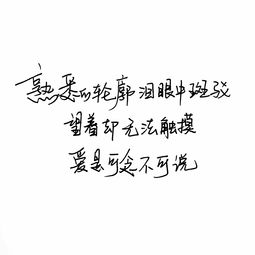 熟悉的轮廓泪眼中斑驳
望着却无法触摸
爱是可念不可说